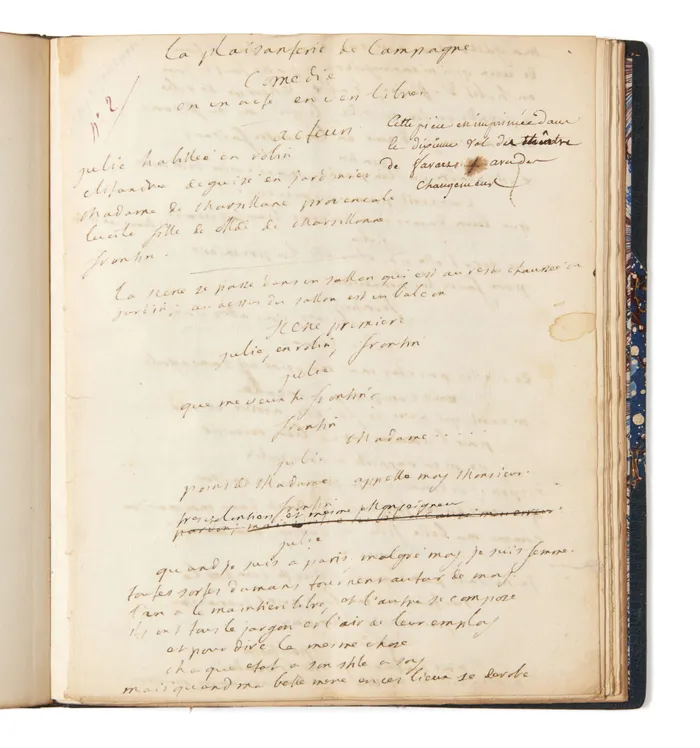 La plaisanterie de Campagne
Comedie
en un acte en vers libres
n.° 2
acteurs
Cette piece est imprimée dans
le dixieme vol du theatre
de favart avec des
changemens
julie habillée en robin
Clitandre deguisé en jardinier
Madame de Marsillane provencale
lucile fille de Mde de Marsillane
frontin.
la scene se passe dans un sallon qui est au rez de chaussée
jardin, au dessus du sallon est un balcon
scene premiere
julie, en robin, frontin
julie
que me veux tu frontin?
frontin
Madame....
julie
point de Madame appelle moy Monsieur.
frontin
et mesme Monseigneur
pardon,
julie
quand je suis a paris malgré moy je suis femme.
toutes sortes d'amans tournent autour de moy.
l'un a le maintien libre, et l'autre se compose
ils ont tous le jargon et l'air de leur employ
et pour dire la mesme chose
chaque etat a son stile a soy
mais quand ma belle mere en ces lieux se derobe